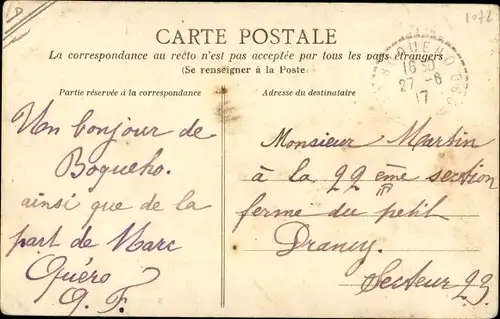 1072
CARTE POSTALE
La correspondance au recto n'est pas acceptée par tous les pays étrangers
(Se renseigner à la Poste
Partie réservée à la correspondance
Adresse du destinataire
BOQUEHO
16 30
27 -6
17
Un bonjour de
Boqueho.
ainsi que de la
part de Marc
Quéro
A. F.
Monsieur Martin
à la 22 ème section
ferme du petit
Drancy.
Secteur 23.